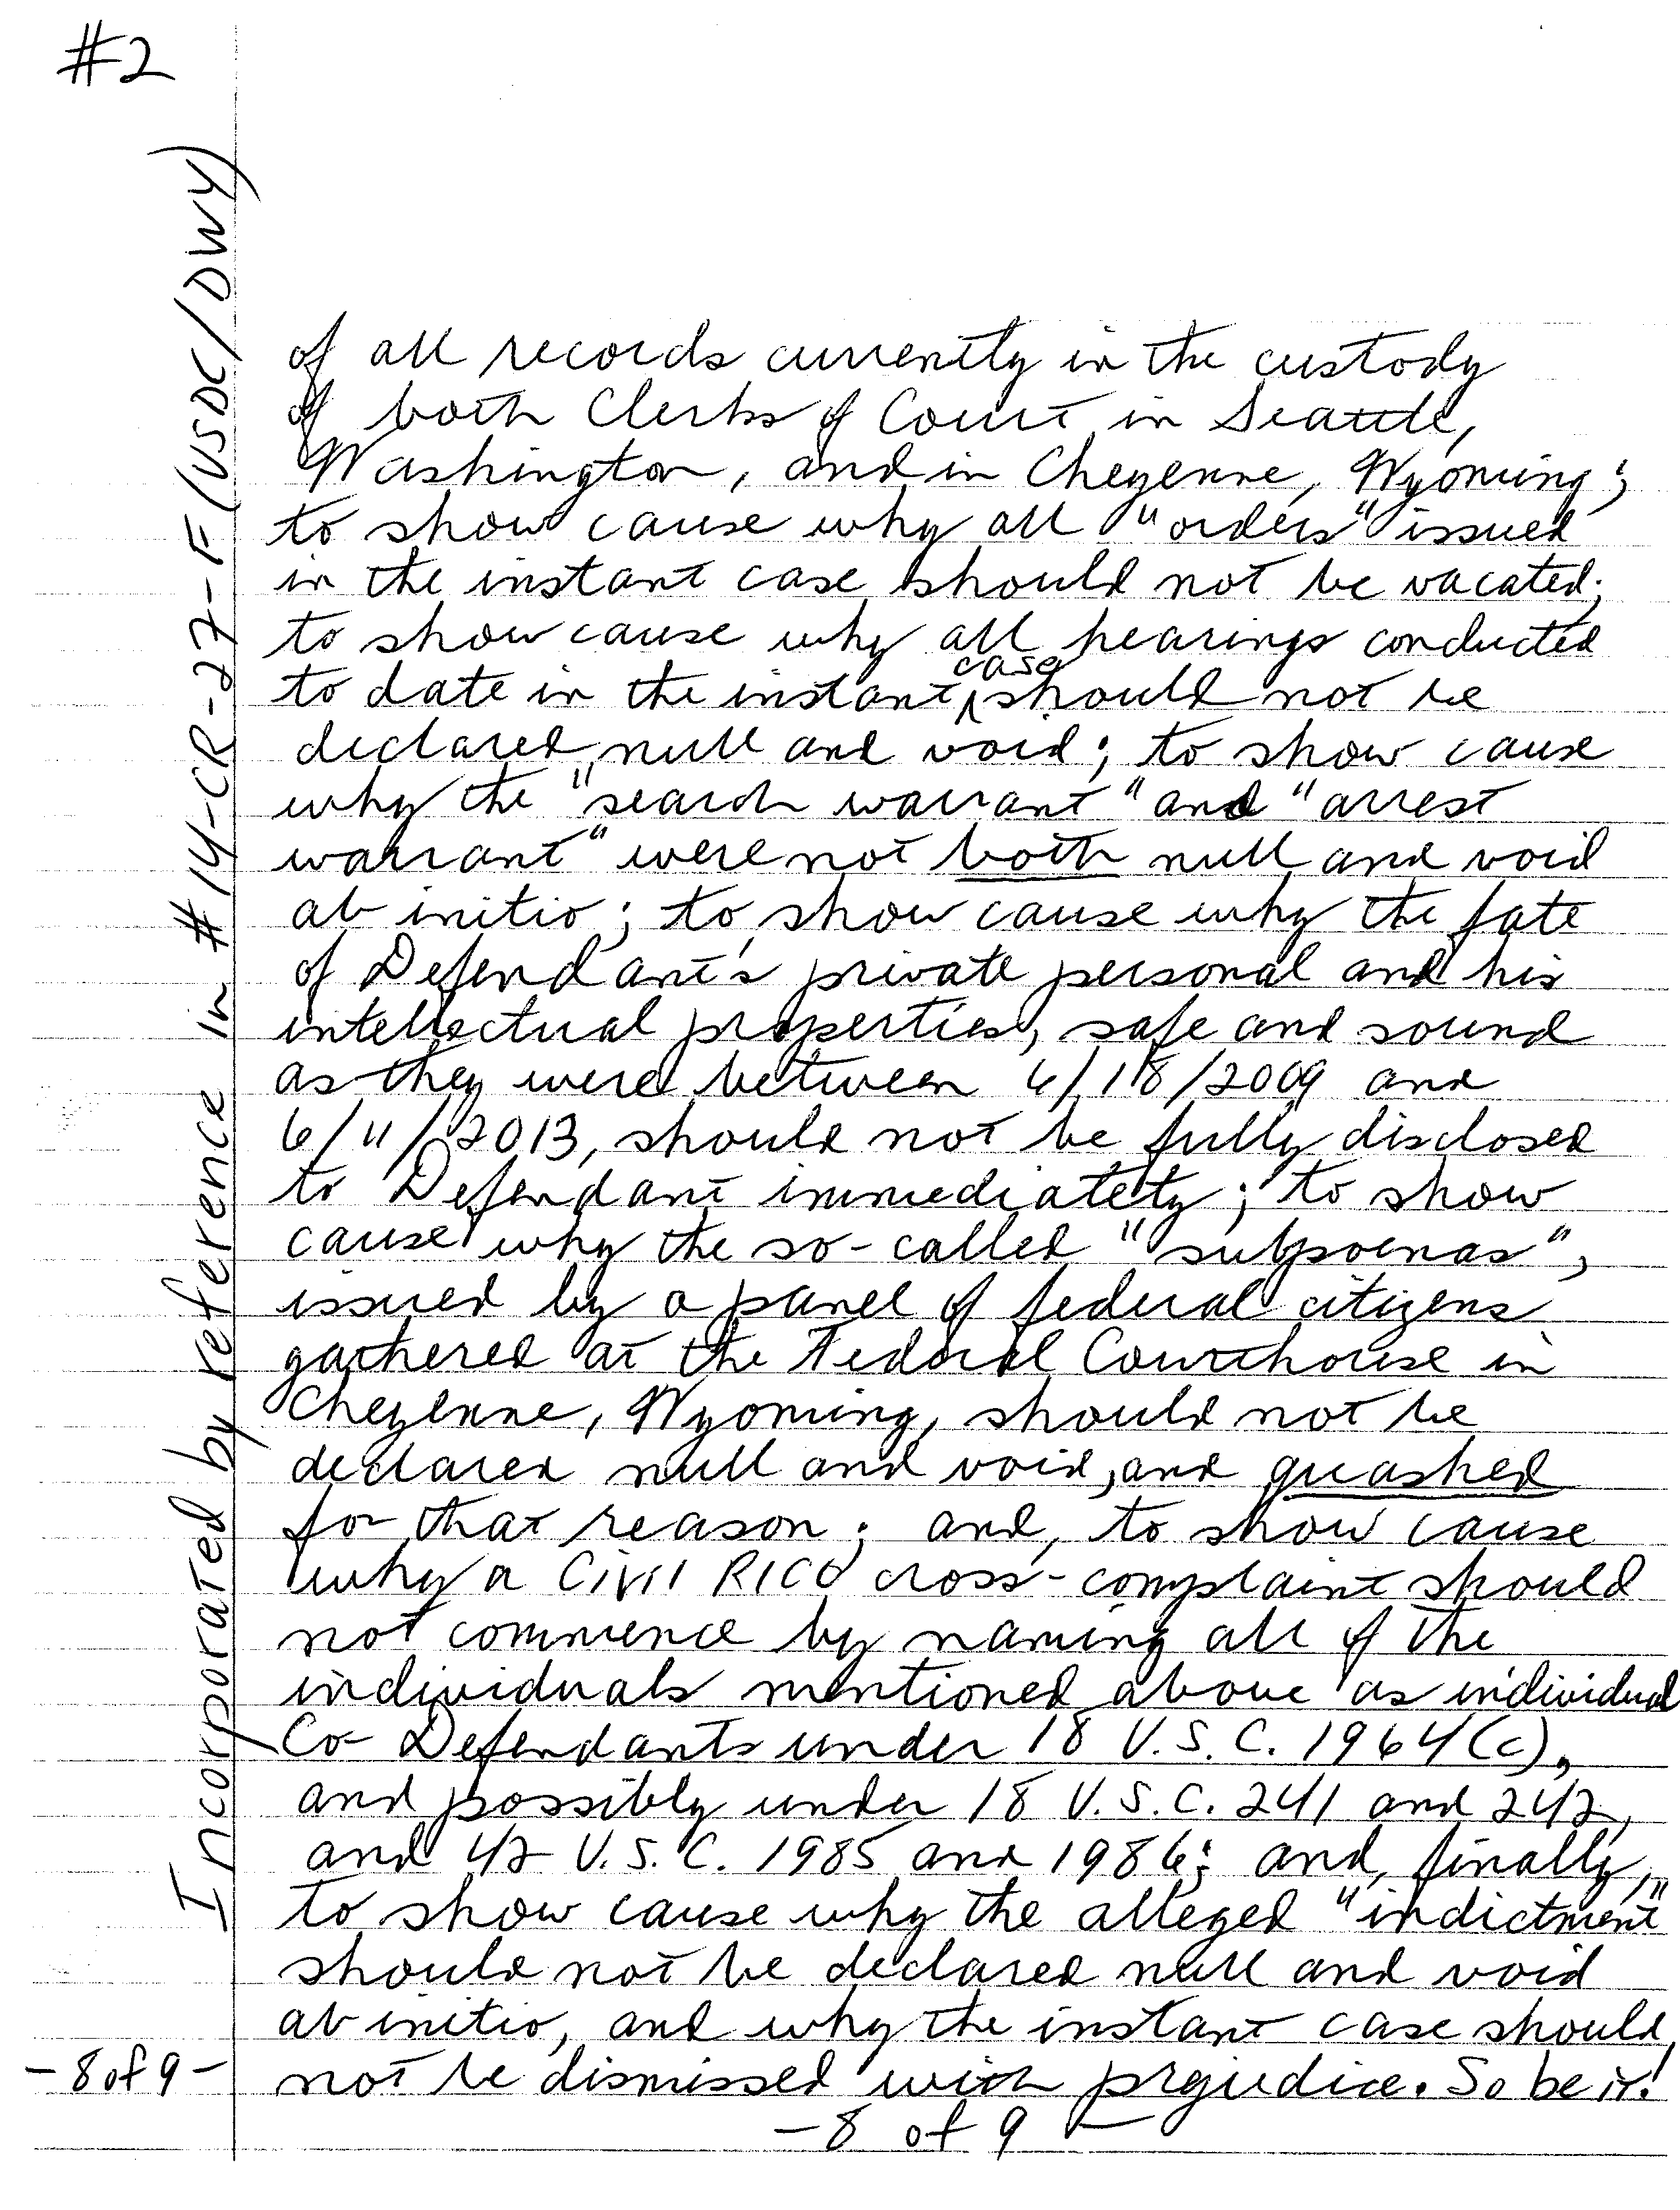 #2
Incorporated by reference in #14-CR-27-F (USDC/DWY)
of all records currently in the custody
of both Clerks of Court in Seattle,
Washington, and in Cheyenne, Wyoming;
to show cause why all "orders" issued
in the instant case should not be vacated;
to show cause why all hearings conducted
to date in the instant case should not be
declared null and void; to show cause
why the "search warrant" and "arrest
warrant" were not both null and void
ab initio; to show cause why the fate
of Defendant's private personal and his
intellectual properties, safe and sound
as they were between 6/18/2009 and
6/11/2013, should not be fully disclosed
to Defendant immediately; to show
cause why the so-called "subpoenas",
issued by a panel of federal citizens
gathered at the Federal Courthouse in
Cheyenne, Wyoming, should not be
declared null and void, and quashed
for that reason; and, to show cause
why a Civil RICO cross-complaint should
not commence by naming all of the
individuals mentioned above as individual
Co-Defendants under 18 U.S.C. 1964(c),
and possibly under 18 U.S.C. 241 and 242,
and 42 U.S.C. 1985 and 1986; and, finally,
to show cause why the alleged "indictment"
should not be declared null and void
ab initio, and why the instant case should
not be dismissed with prejudice. So be it!
-8 of 9-
-8 of 9-